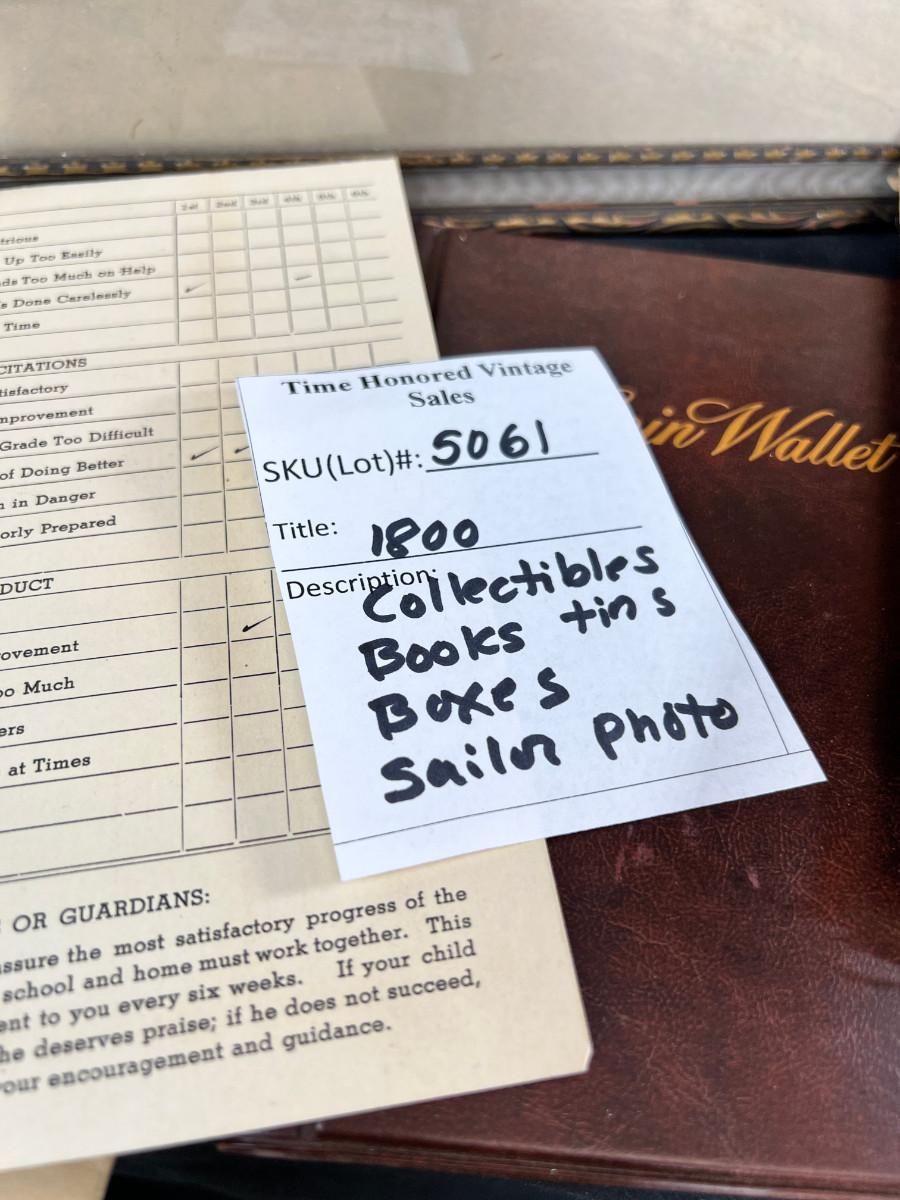 1st 2nd 3rd 4th 5th 6th
Up Too Easily
Too Much on Help
Done Carelessly
Time
CITATIONS
Grade Too Difficult
of Doing Better
in Danger
Prepared
Too Much
at Times
OR GUARDIANS:
assure the most satisfactory progress of the
school and home must work together. This
to you every six weeks. If your child
he deserves praise; if he does not succeed,
your encouragement and guidance.
Time Honored Vintage
Sales
SKU(Lot)#: 5061
Title: 1800
Description:
Collectibles
Books tins
Boxes
Sailor photo
Wallet